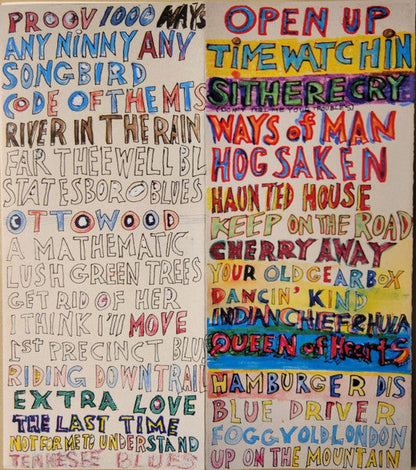 PROOV 1000 WAYS
ANY NINNY ANY
SONGBIRD
CODE OF THE MTS
RIVER IN THE RAIN
FAR THEE WELL BL
STATESBORO BLUES
OTTOWOOD
A MATHEMATIC
LUSH GREEN TREES
GET RID OF HER
I THINK I'll MOVE
1st PRECINCT BLU
RIDING DOWN TRAIL
EXTRA LOVE
THE LAST TIME
NOT FOR ME TO UNDERSTAND
TENNESEE BLUES
OPEN UP
TIME WATCHIN
SIT HERE CRY
WAYS of MAN
HOGSAKEN
HAUNTED HOUSE
KEEP ON THE ROAD
CHERRY AWAY
YOUR OLD GEARBOX
DANCIN' KIND
INDIAN CHIEF & HULA
QUEEN of HeartS
HAMBURGER DIS
BLUE DRIVER
FOGGY OLD LONDON
UP ON THE MOUNTAIN